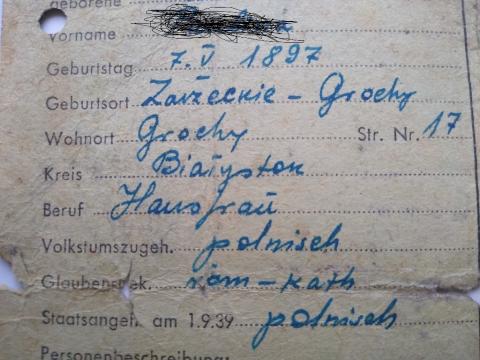 geborene
Vorname
Geburtstag 7. V 1897
Geburtsort Zarzeckie - Grochy
Wohnort Grochy Str. Nr. 17
Kreis Białystok
Beruf Hausfrau
Volkstumszugeh. polnisch
Glaubensbek. röm - kath
Staatsangeh. am 1.9.39 polnisch
Personenbeschreibung: